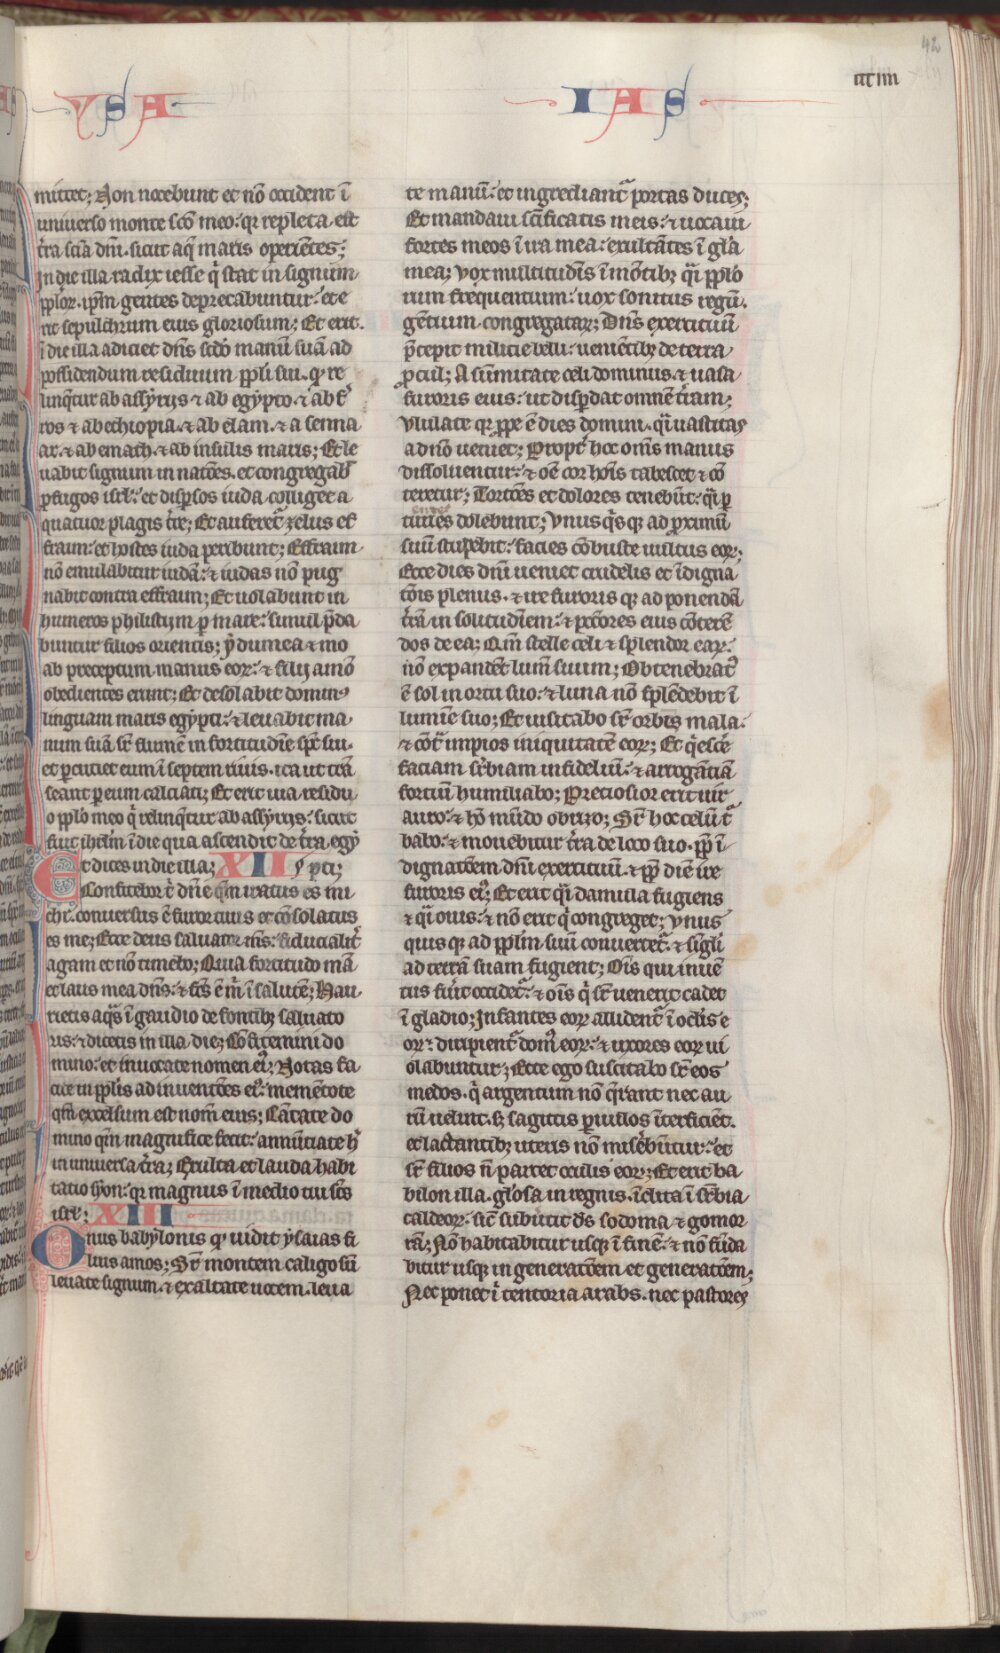 42
YSA IAS
mittet; Non nocebunt et nō occident ī
uniuerso monte sc̄o meo: qr repleta est
t̄ra sc̄ia dn̄i. sicut aq̄ maris operiētes;
In die illa radix iesse q̄ stat in signum
pp̄lor. ip̄m gentes deprecabuntur: et e
rit sepulchrum eius gloriosum; Et erit.
ī die illa adiciet dn̄s sc̄do manū suā ad
possidendum residuum pp̄li sui. qd re
linq̄tur ab assyrijs ⁊ ab egypto. ⁊ ab fe
ros ⁊ ab ethiopia. ⁊ ab elam. ⁊ a senna
ar. ⁊ ab emath. ⁊ ab insulis maris; Et le
uabit signum in natōes. et congregab
ꝓfugos isrl: et disꝑsos iuda colliget a
quatuor plagis tr̄e; Et auferet zelus ef
fraim: et hostes iuda ꝑibunt; Effraim
nō emulabitur iudā: ⁊ iudas nō pug
nabit contra effraim; Et uolabunt in
humeros philistijm ꝑ mare: simul p̄da
buntur filios orientis; ydumea ⁊ mo
ab preceptum manus eor: ⁊ filij amō
obedientes erunt; Et desolabit dominꝰ
linguam maris egypti: ⁊ leuabit ma
num suā sr̄ flumē in fortitudīe sp̄c sui.
et ꝑcutiet eum ī septem riuis. ita ut trā
seant ꝑ eum calciati; Et erit uia residu
o pp̄lo meo q̄ relinq̄tur ab assyrijs: sicut
fuit ihrl̄m ī die qua ascendit de t̄ra egy
Et dices in die illa; XII ypti;
Confitebor t̄ dn̄e qm̄ iratus es mi
chi. conuersus ē furor tuus et cōsolatus
es me; Ecce deus saluator ms̄: fiducialit̄
agam et nō timebo; Quia fortitudo mā
et laus mea dn̄s: ⁊ fc̄s ē m̄ ī salutē; Hau
rietis aq̄s ī gaudio de fontibꝫ saluato
ris: ⁊ dicetis in illa die; Cōfitemini do
mino: et inuocate nomen eiꝰ; Notas fa
cite in pp̄lis adinuentōes eiꝰ: memētote
qm̄ excelsum est nom̄ eius; Cātate do
mino qm̄ magnifice fecit: annūtiate h̄
in uniuersa t̄ra; Exulta et lauda habi
tatio syon: qr magnus ī medio tui sc̄s
isrl: XIII
Onus babylonis qd uidit ysaias fi
lius amos; Sr̄ montem caligosū
leuate signum. ⁊ exaltate uocem. leua
te manū: et ingrediantr̄ portas duces;
Et mandaui sc̄ificatis meis: ⁊ uocaui
fortes meos ī ira mea: exultātes ī gl̄a
mea; Vox multitudīs ī mōtibꝫ q̄i pp̄lo
rum frequentium: uox sonitus regū.
gētium congregatar; Dn̄s exercituū
p̄cepit militie belli: uenietibꝫ de terra
ꝓcul; A sūmitate celi dominus. ⁊ uasa
furoris eius: ut disꝑdat omnē t̄ram;
Vlulate qr ꝓpe ē dies domini. q̄i uastitas
a dn̄o ueniet; Propt̄ hoc om̄s manus
dissoluentur: ⁊ oē cor hōis tabescet ⁊ cō
teretur; Tortōes et dolores tenebūt: q̄i ꝑ
turiēs dolebunt; Vnus q̄sqꝫ ad ꝓximū
suū stupebit: facies cōbuste uultus eor;
Ecce dies dn̄i ueniet crudelis et īdigna
tōis plenus. ⁊ ire furoris qꝫ ad ponendā
t̄rā in solitudīem: ⁊ pct̄ores eius cōterē
dos de ea; Qm̄ stelle celi ⁊ splendor ear:
nō expandēt lum̄ suum; Obtenebratꝰ
ē sol in ortu suo: ⁊ luna nō splēdebit ī
lumīe suo; Et uisitabo sr̄ orbis mala:
⁊ cōt̄ impios iniquitatē eor; Et q̄escē
faciam sr̄biam infideliū: ⁊ arrogātiā
fortiū humiliabo; Preciosior erit uir
auro: ⁊ hō mūdo obrizo; Sr̄ hoc celū t̄
babo: ⁊ mouebitur t̄ra de loco suo. ꝓp̄ ī
dignatōem dn̄i exercituū. ⁊ ꝓp̄ diē ire
furoris eiꝰ; Et erit q̄i damula fugiens
⁊ q̄i ouis: ⁊ nō erit q̄ congreget; Vnus
quis qꝫ ad pp̄lm̄ suū conuertet̄. ⁊ sīgl̄i
ad terrā suam fugient; Oīs qui inuē
tus fu̅it occidet̄: ⁊ oīs q̄ sr̄ uenerit cadet
ī gladio; Infantes eor allident̄ ī oclīs e
or: diripient̄ domꝰ eor: ⁊ uxores eor ui
olabuntur; Ecce ego suscitabo sr̄ eos
medos. q̄ argentum nō q̄rant nec au
rū uelint. sꝫ sagittis ꝑuulos īterficient.
et lactantibꝫ uteris nō misebūtur: et
sr̄ filios n̄ parcet oculis eor; Et erit ba
bilon illa. gl̄osa in regnis. īclita ī sr̄bia
caldeor: sic̄ subūtit ds̄ sodoma ⁊ gomor
rā; Nō habitabitur usqꝫ ī finē. ⁊ nō fūda
bitur usqꝫ in generatōem et generatōem;
Nec ponet ī tentoria arabs. nec pastores